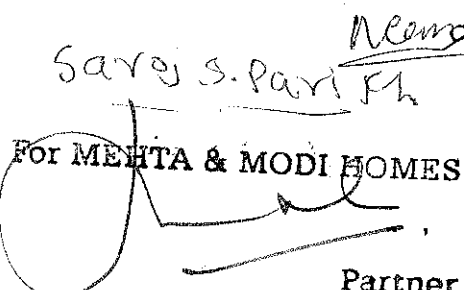 Saroj S. Parikh
For MEHTA & MODI HOMES
Partner